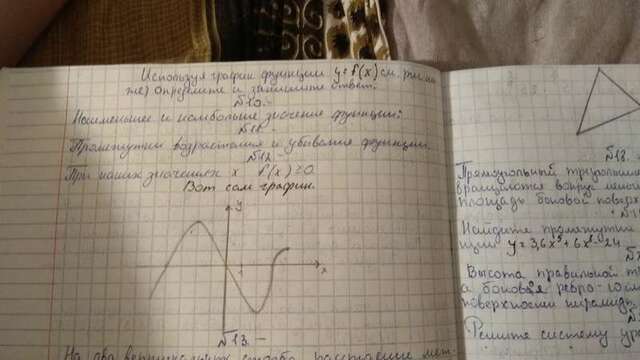 Используя график функции y=f(x) см. рис. ни
же) определите и запишите ответ.
№10.-
Наименьшее и наибольшее значение функции:
№11.-
Промежутки возрастания и убывания функции.
№12.-
При каких значениях x f(x)≥0
Вот сам график.
y
1
x
№13.-
На два
расстояние
№18.-
Прямоугольный треугольник
вращается вокруг
площадь боковой поверх
Найдите промежутки
ции y=3,6x⁵+6x
Высота правильной
а боковое ребро-10
поверхности пирамиды
Решите систему ур